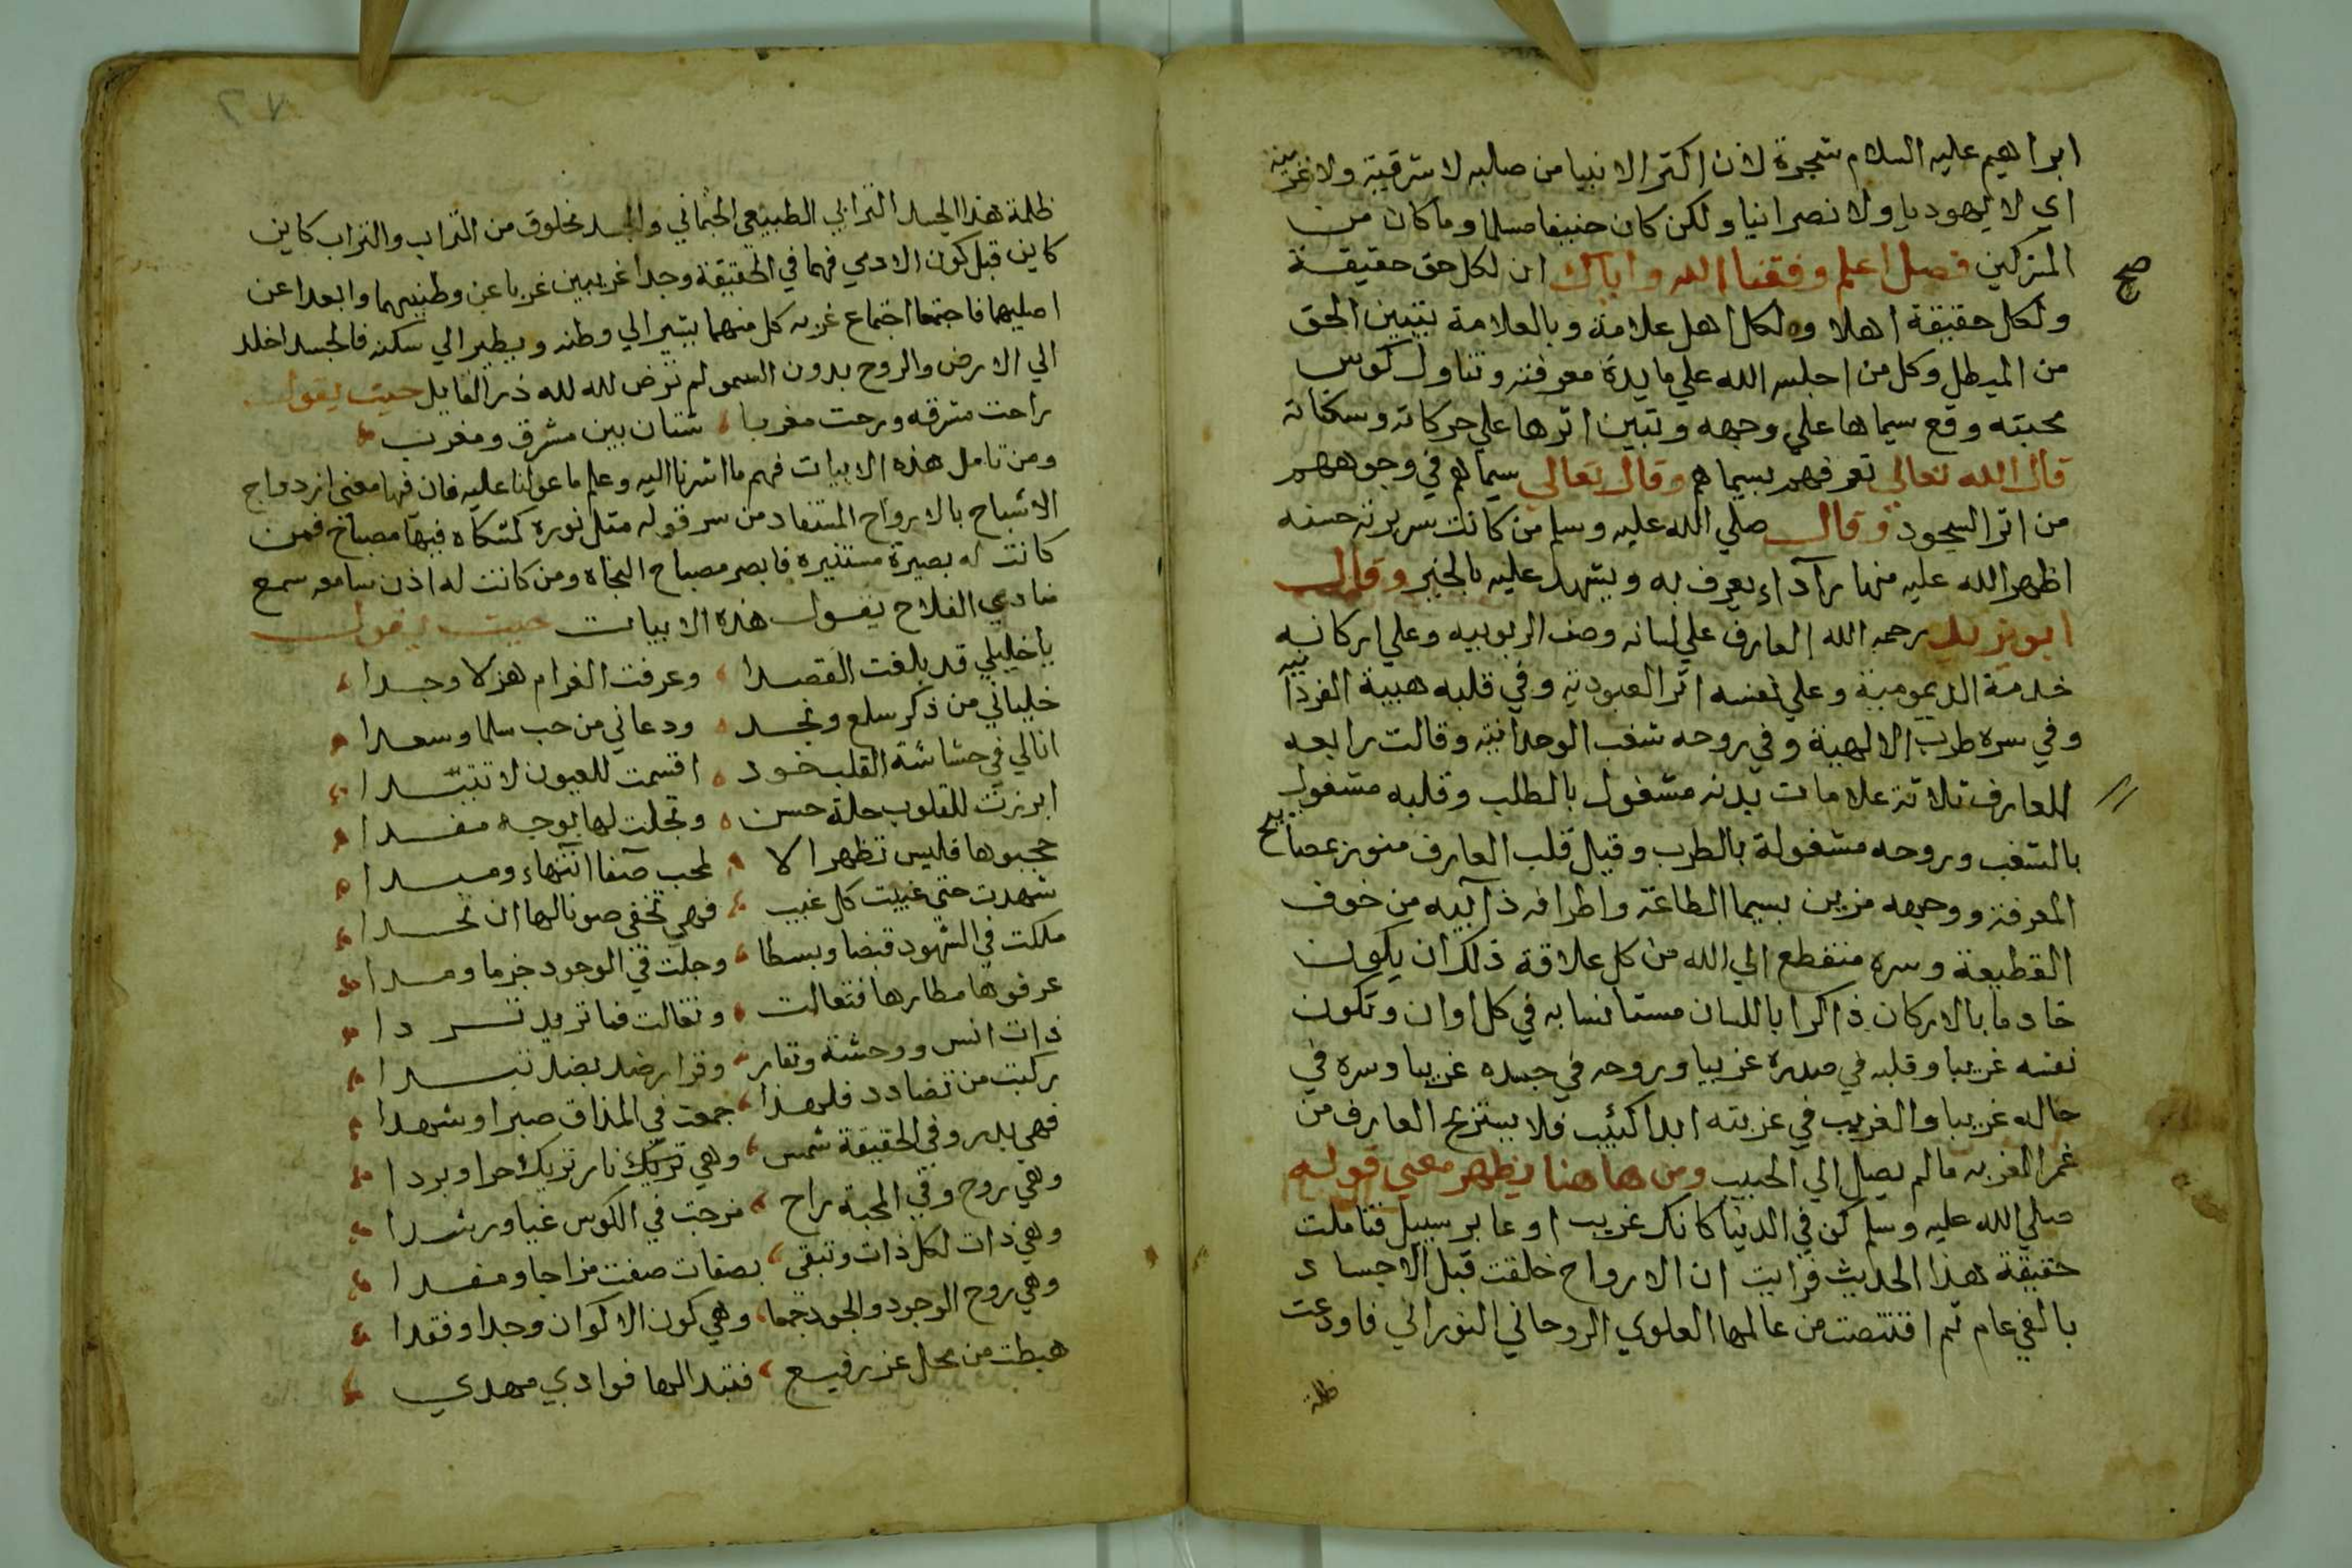 ابراهيم عليه السلام شجرة لان اكثر الانبيا من صلبه لا شرقية ولا غربية
اي لا يهوديا ولا نصرانيا ولكن كان حنيفا مسلما وما كان من
المشركين فصل اعلم وفقنا الله واياك ان لكل حق حقيقة
صح
ولكل حقيقة اهلا ولكل اهل علامة وبالعلامة يتبين الحق
من المبطل وكل من اجلسه الله علي مايدة معرفته وتناول كوس
محبته وقع سيماها علي وجهه وتبين اثرها علي حركاته وسكناته
قال الله تعالي تعرفهم بسيماهم وقال تعالي سيماهم في وجوههم
من اثر السجود وقال صلي الله عليه وسلم من كانت سريرته حسنه
اظهر الله عليه منها رداء يعرف به ويشهد عليه بالخير وقال
ابو يزيد رحمه الله العارف علي لسانه وصف الربوبيه وعلي اركانه
خدمة الديمومية وعلي نفسه اثر العبودية وفي قلبه هيبة الفردانيه
وفي سره طرب الالهية وفي روحه شغب الوحدانية وقالت رابعه
للعارف ثلاثة علامات بدنه مشغول بالطلب وقلبه مشغول
بالشغب وروحه مشغولة بالطرب وقيل قلب العارف منور بمصابيح
المعرفة ووجهه مزين بسيما الطاعة واطرافه ذآيبه من خوف
القطيعة وسره منقطع الي الله من كل علاقة ذلك ان يكون
خادما بالاركان ذاكرا باللسان مستانسا به في كل اوان وتكون
نفسه غريبا وقلبه في صدره غريبا وروحه في جسده غريبا وسره في
حاله غريبا والغريب في غربته ابدا كئيب فلا يستريح العارف من
غمر الغربه ما لم يصل الي الحبيب ومن هاهنا يظهر معني قوله
صلي الله عليه وسلم كن في الدنيا كانك غريب او عابر سبيل فتاملت
حقيقة هذا الحديث فرايت ان الارواح خلقت قبل الاجساد
بالفي عام ثم اقتنصت من عالمها العلوي الروحاني النوراني فاودعت
ظلمة
ظلمة هذا الجسد الترابي الطبيعي الجثماني والجسد مخلوق من التراب والتراب كاين
كاين قبل كون الادمي فهما في الحقيقة وجدا غريبين غربا عن وطنيهما وابعدا عن
اصليهما فاجتمعا اجتماع غربه كل منهما يشير الي وطنه ويطير الي سكنه فالجسد اخلد
الي الارض والروح بدون السمو لم ترض لله لله ذر القايل حيث يقول
راحت مشرقه ورحت مغربا شتان بين مشرق ومغرب
ومن تامل هذه الابيات فهم ما اشرنا اليه وعلم ما عولنا عليه فان فيها معني ازدواج
الاشباح بالارواح المستفاد من سر قوله مثل نوره كمشكاه فيها مصباح فمن
كانت له بصيرة مستنيره فابصر مصباح النجاه ومن كانت له اذن سامعه سمع
منادي الفلاح يقول هذه الابيات حيث يقول
يا خليلي قد بلغت القصدا وعرفت الغرام هزلا وجدا
خلياني من ذكر سلع ونجد ودعاني من حب سلما وسعدا
انا لي في حشاشة القلب خود اقسمت للعيون لا تتبدا
ابرزت للقلوب حلة حسن وتجلت لها بوجه مفدا
حجبوها فليس تظهر الا لمحب صفا انتهاء ومبدا
شهدت حتي غيبت كل غيب فهي تخفي صونا لها ان تحدا
ملكت في الشهود قبضا وبسطا وجلت في الوجود جزما ومدا
عرفوها مطارها فتعالت وتقالت فما تريد تردا
ذات انس ووحشة ونفار وقرار ضد بضد تبدا
ركبت من تضادد فلهذا جمعت في المذاق صبرا وشهدا
فهي بدر وفي الحقيقة شمس وهي تريك نار تريك حرا وبردا
وهي روح وفي المحبة راح مزجت في الكوس غيا ورشدا
وهي ذات لكل ذات وتبقي بصفات صفت مزاجا ومفدا
وهي روح الوجود والجود جمعا وهي كون الاكوان وجدا وفقدا
هبطت من محل عز رفيع فتبد الها فوادي مهدي